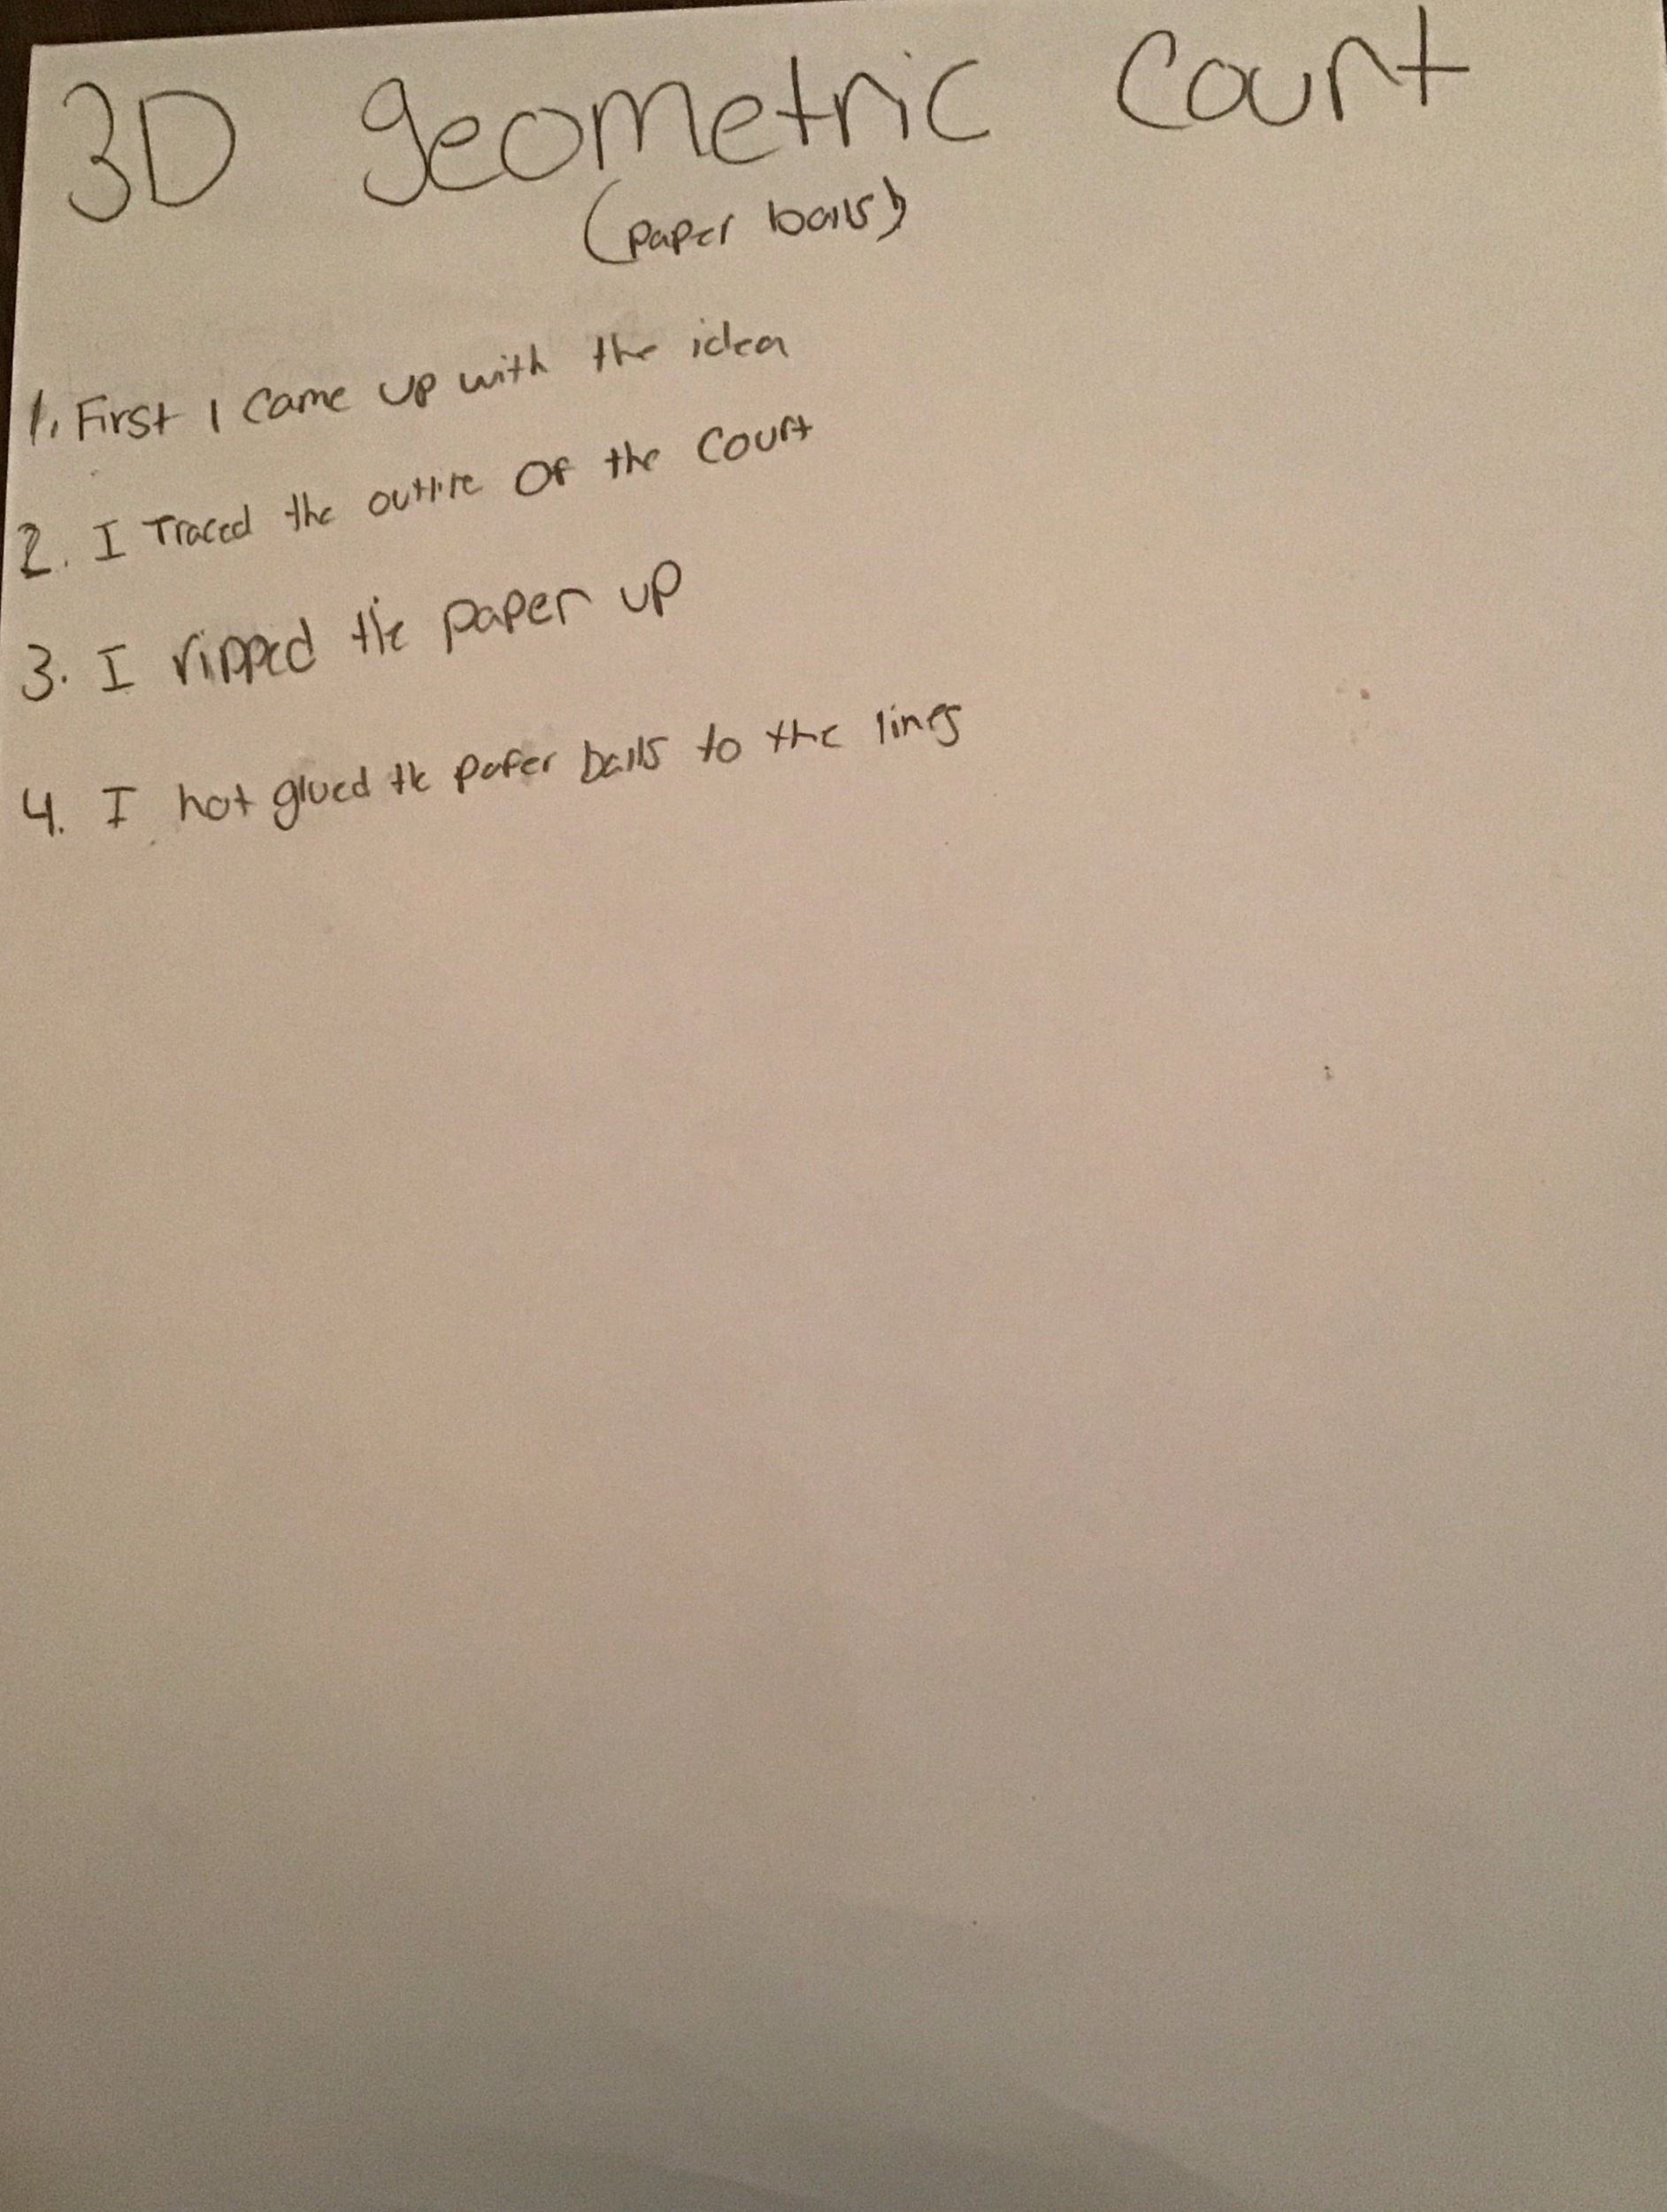 3D geometric Court
(paper balls)
1. First I came up with the idea
2. I Traced the outline Of the Court
3. I ripped the paper up
4. I hot glued the paper balls to the lines